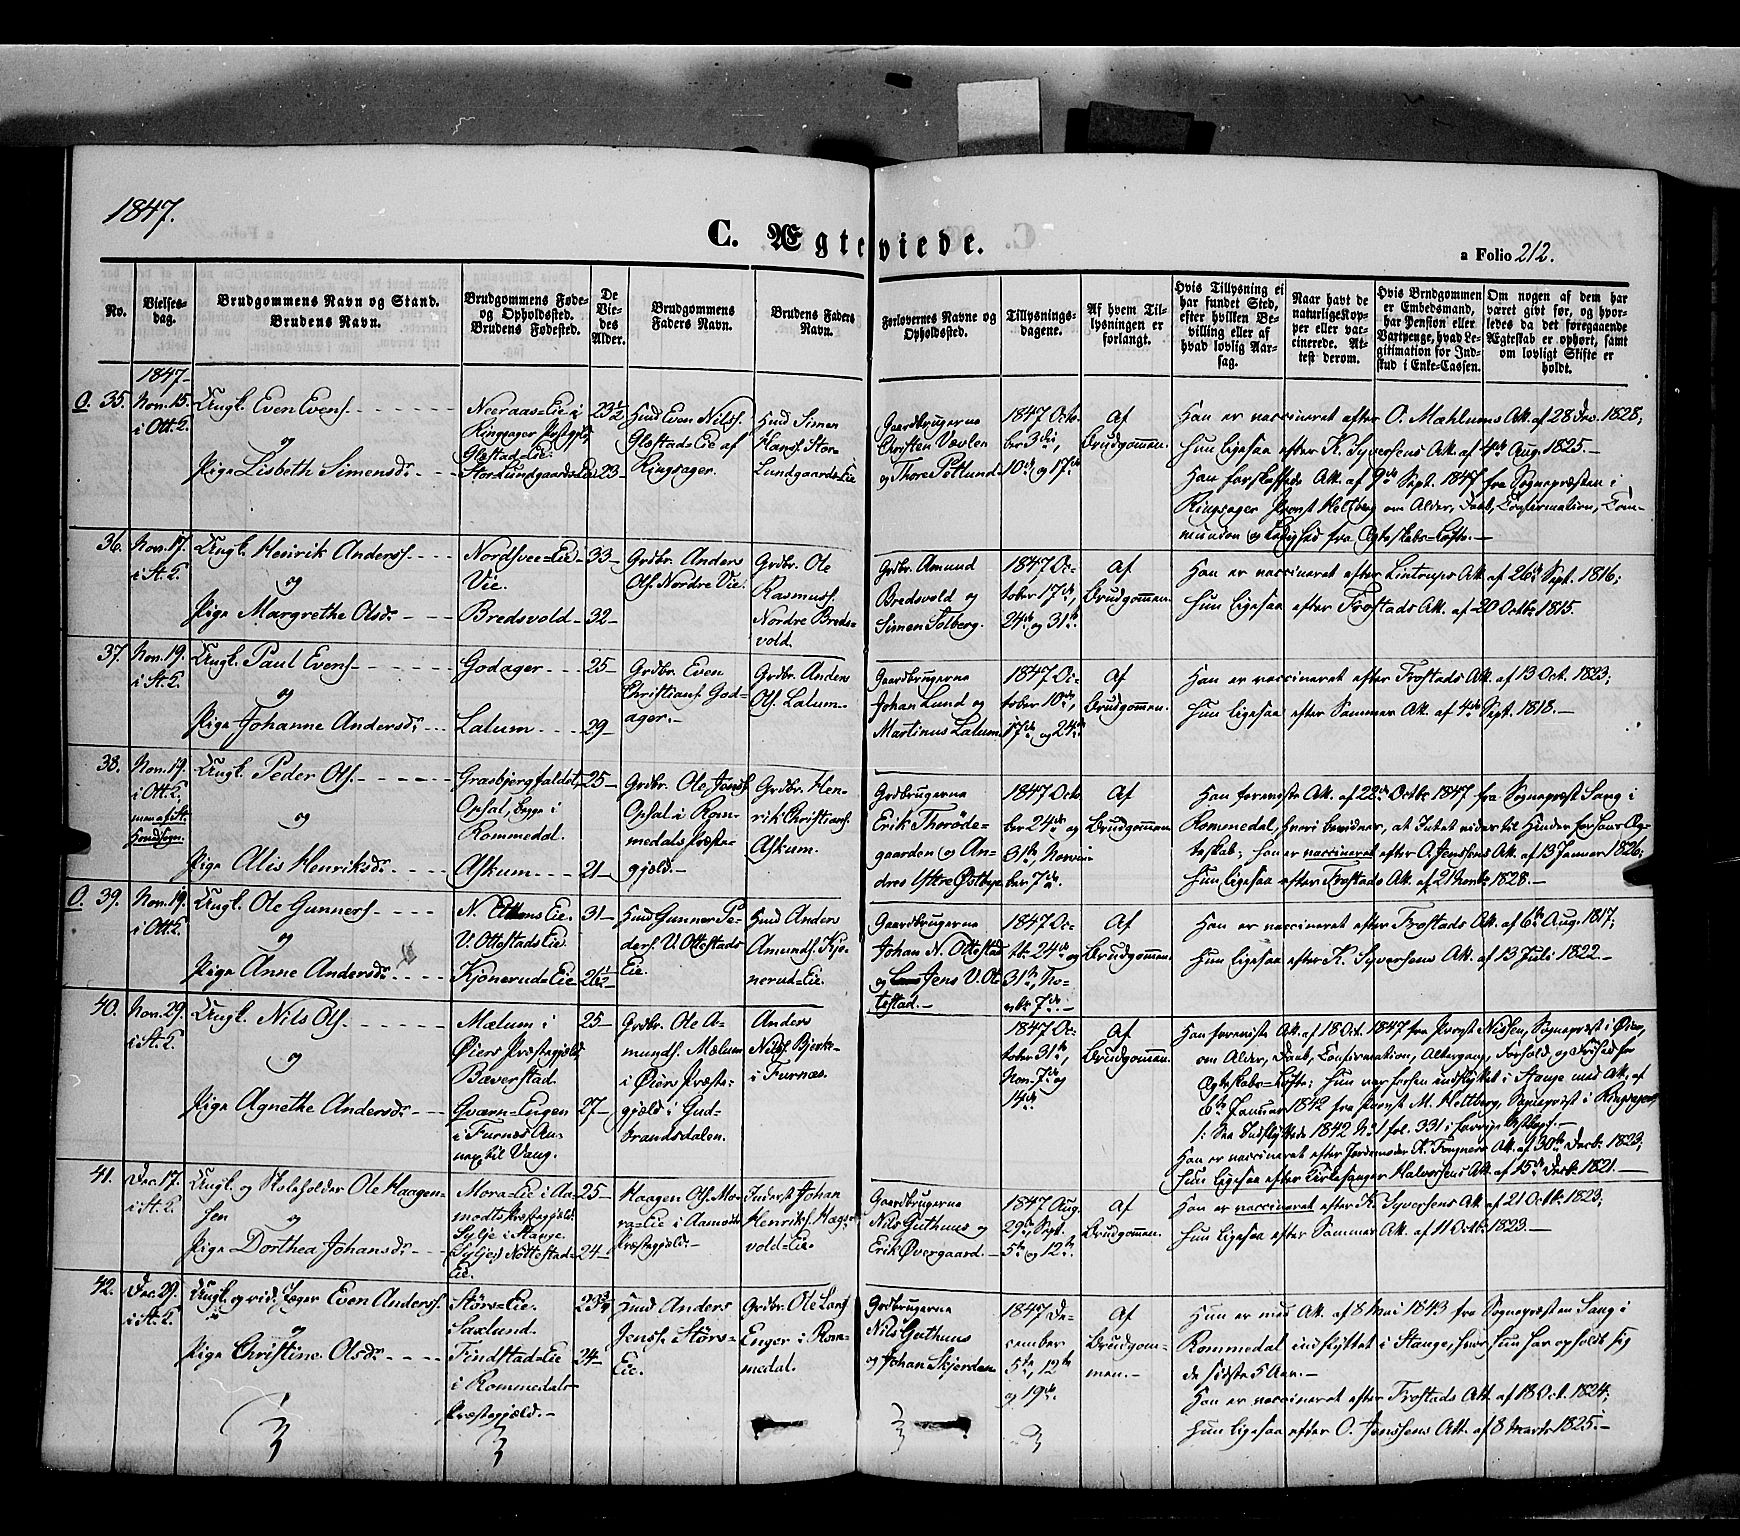 1847.
C. Ægteviede.
a Folio 212.
No.
Vielses-
dag.
Brudgommens Navn og Stand.
Brudens Navn.
Brudgommens Føde-
og Opholdssted.
Brudens Fødested.
De
Vie-
des
Alder.
Brudgommens
Faders Navn.
Brudens Faders
Navn.
Forlovernes Navne og
Opholdssted.
Tillysnings-
dagene.
Af hvem Til-
lysningen er
forlangt.
Hvis Tillysning ei
har fundet Sted,
efter hvilken Be-
villing eller af
hvad lovlig Aar-
sag.
Naar havt de
naturlige Kop-
per eller vac-
cinerede. At-
test derom.
Hvis Brudgommen
er Embedsmand,
har Pension eller
Vartpenge, hvad Le-
gitimation for Ind-
skud i Enke-Cassen.
Om nogen af dem har
været gift før, og hvor-
ledes da det foregaaende
Ægteskab er ophørt, samt
om lovligt Skifte er
holdt.
1847-
O. 35.
Nov. 15.
i Ott. K.
Ungk. Even Evens.
og
Pige Lisbeth Simensdr
Neeraas=Eie i
Ringsager Præstgjld,
Glæstad=Eie.
Stor Lundgaards=Eie
23½
23-
Huusmd Even Nils.
Glæstads Eie af
Ringsager.
Huusmd Simen
Hans. Stor
Lundgaards=Eie
Gaardbrugerne
Christen Vævlen
og Thore Potlund
1847 Octo
ber 3die
10de og 17de
Af
Brudgommen.
Han er vaccineret efter O. Mæhlums Att. af 28 Dec. 1828;
Hun ligesaa efter K. Syversens Att. af 4de Aug. 1825.-
Han forskaffede Att. af 9de Sept. 1847 fra Sognepræsten i
Ringsager Provst Heltberg om Alder, Daab, Confirmation, Com-
munion og Ledighed fra Ægteskabs=Løfte.-
36.
Nov. 17.
i St. K.
Ungk. Henrik Anders.
og
Pige Margrethe Olsdr
Nordsvee=Eie
Vie.
Bredsvold-
33-
32-
Grdbr. Anders
Ols. Nordre Vie.
Grdbr. Ole
Rasmus.
Nordre Breds-
vold.
Grdbr. Amund
Bredsvold og
Simen Solberg.
1847 Oc-
tober 17de,
24de og 31te
Af
Brudgommen.
Han er vaccineret efter Lintrups Att. af 26de Sept. 1816;
Hun ligesaa efter Frostads Att. af 20 Octbr 1815.
37.
Nov. 19.
i St. K.
Ungk. Paul Evens.
og
Pige Johanne Andersdr
Godager
Lalum
25-
29-
Grdbr. Even
Christians. God-
ager.-
Grdbr. Anders
Ols. Lalum-
Gaardbrugerne
Johan Lund og
Martinus Lalum
1847 Oc-
tober 10de,
17de og 24de
Af
Brudgommen.
Han er vaccineret efter Frostads Att. af 13 Oct. 1823;
Hun ligesaa efter Sammes Att. af 4de Sept. 1818.-
38.
Nov. 19.
i Ott. K.
Ungk. Peder Ols.
og
Pige Alis Henriksdr
Grasbjergfaldet,
Opsal, begge i
Rommedal.
Askum-
25-
21-
Grdbr. Ole Jons.
Opsal i Rom-
medals Præste-
gjæld.-
Grdbr. Hen-
rik Christians.
Askum.
Grdbrugerne
Erik Thorøde-
gaarden og An-
dres Yttre Østbye
1847 Octo
ber 24de og
31te Novem
ber 7de.
Af
Brudgommen
Han foreviste Att. af 22de Octbr 1847 fra Sognepræst Lang i
Rommedal, hvori bevidner, at Intet vides til Hinder for hans Æg-
teskab; han er vaccineret efter O. Jenssens Att. af 13 Januar 1826;
Hun ligesaa efter Frostads Att. af 21 Novbr 1828.-
O. 39.
Nov. 19.
i Ott. K.
Ungk. Ole Gunners.
og
Pige Anne Andersdr
V. Ottestads Eie.
Kjønerud=Eie
31-
26½
Huusmd Gunner Pe-
ders. V. Ottestads
Eie.
Huusmd Anders
Amunds. Kjø-
nerud=Eie.
Gaardbrugerne
Johan N. Ottestad
og Jens V. Ot-
testad.-
1847 Oc-
tbr 24de og
31te, No-
vbr 7de.-
Af
Brudgommen.
Han er vaccineret efter Frostads Att. af 6te Aug. 1817;
Hun ligesaa efter K. Syversens Att. af 13 Juli 1822.-
40.
Nov. 29.
i St. K.
Ungk. Nils Ols.
og
Pige Agnethe Andersdr
Mælum i
Øiers Præstegjæld
Bæverstad.
Qværn=Eugen
i Furnæs An-
nex til Vang.
25-
27-
Grdbr. Ole A-
munds. Mælum
i Øiers Præste-
gjæld i Gud-
brandsdalen.
Anders
Nils. Bjerke-
i Furnæs.
1847 Oc-
tober 31te,
Nov. 7de og
14de
Af
Brudgommen.
Han foreviste Att. af 18 Oct. 1847 fra Provst Nissen, Sognepræst i Øier,
om Alder, Daab, Confirmation, Altergang, Forhold og Frihed for
Ægteskabs=Løfte; Hun var forhen indflyttet i Stange med Att. af
6te Januar 1842 fra Provst M. Heltberg, Sognepræst i Ringsager,
Han er vaccineret efter Jordemoder K. Fougners Att. af 30te Decbr. 1823;
Hun ligesaa efter Kirkesanger Halvorsens Att. af 15de Decbr. 1821.-
41.
Dec. 17.
i St. K.
Ungk. og Skoleholder Ole Haagen-
sen og
Pige Dorthea Johansdr
Mora=Eie i Aa-
modts Præstegjæld.
Sylje i Stange
25-
24-
Haagen Ols. Mo-
ra=Eie i Aamodts
Præstegjæld.-
Inderst Johan
Henriks. Hage-
vold=Eie.
Gaardbrugerne
Nils Guthuus og
Erik Øvergaard.-
1847 Aug.
29de, Sept.
5te og 12te.
Af
Brudgommen.
Han er vaccineret efter K. Syversens Att. af 21 Octbr. 1823;
Hun ligesaa efter Sammes Att. af 11 Octbr. 1823.-
42.
Dec. 29.
i St. K.
Ungk. og rid. Jæger Even Anders.
og
Pige Christine Olsdr
Størs=Eie.
Saxlund.
Findstad=Eie
i Rommedals
Præstegjæld.-
23¾
24-
Huusmd Anders
Jens. Størs=
Eie.
Grdbr. Ole Lars.
Enger i Rom-
medal.
Grdbrugerne
Nils Guthuus
og Johan Skjerden
1847 De-
cember
5te, 12te
og 19de.
Af
Brudgom-
men.-
Hun er med Att. af 8 Mai 1843 fra Sognepræsten Lang i
Rommedal indflyttet i Stange, hvor hun har opholdt sig
de sidste 5 Aar.-
Han er vaccineret efter Frostads Att. af 18 Oct. 1824;
Hun ligesaa efter O. Jenssens Att. af 8 Marts 1825.-